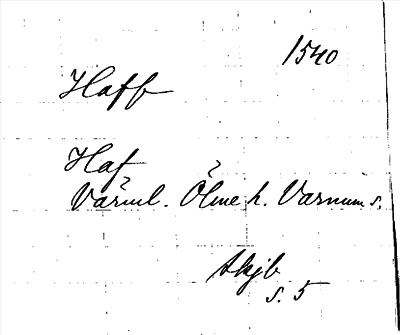 1540
Haff
Haf
Värml. Ölme h. Varnum s.
skjb
s. 5